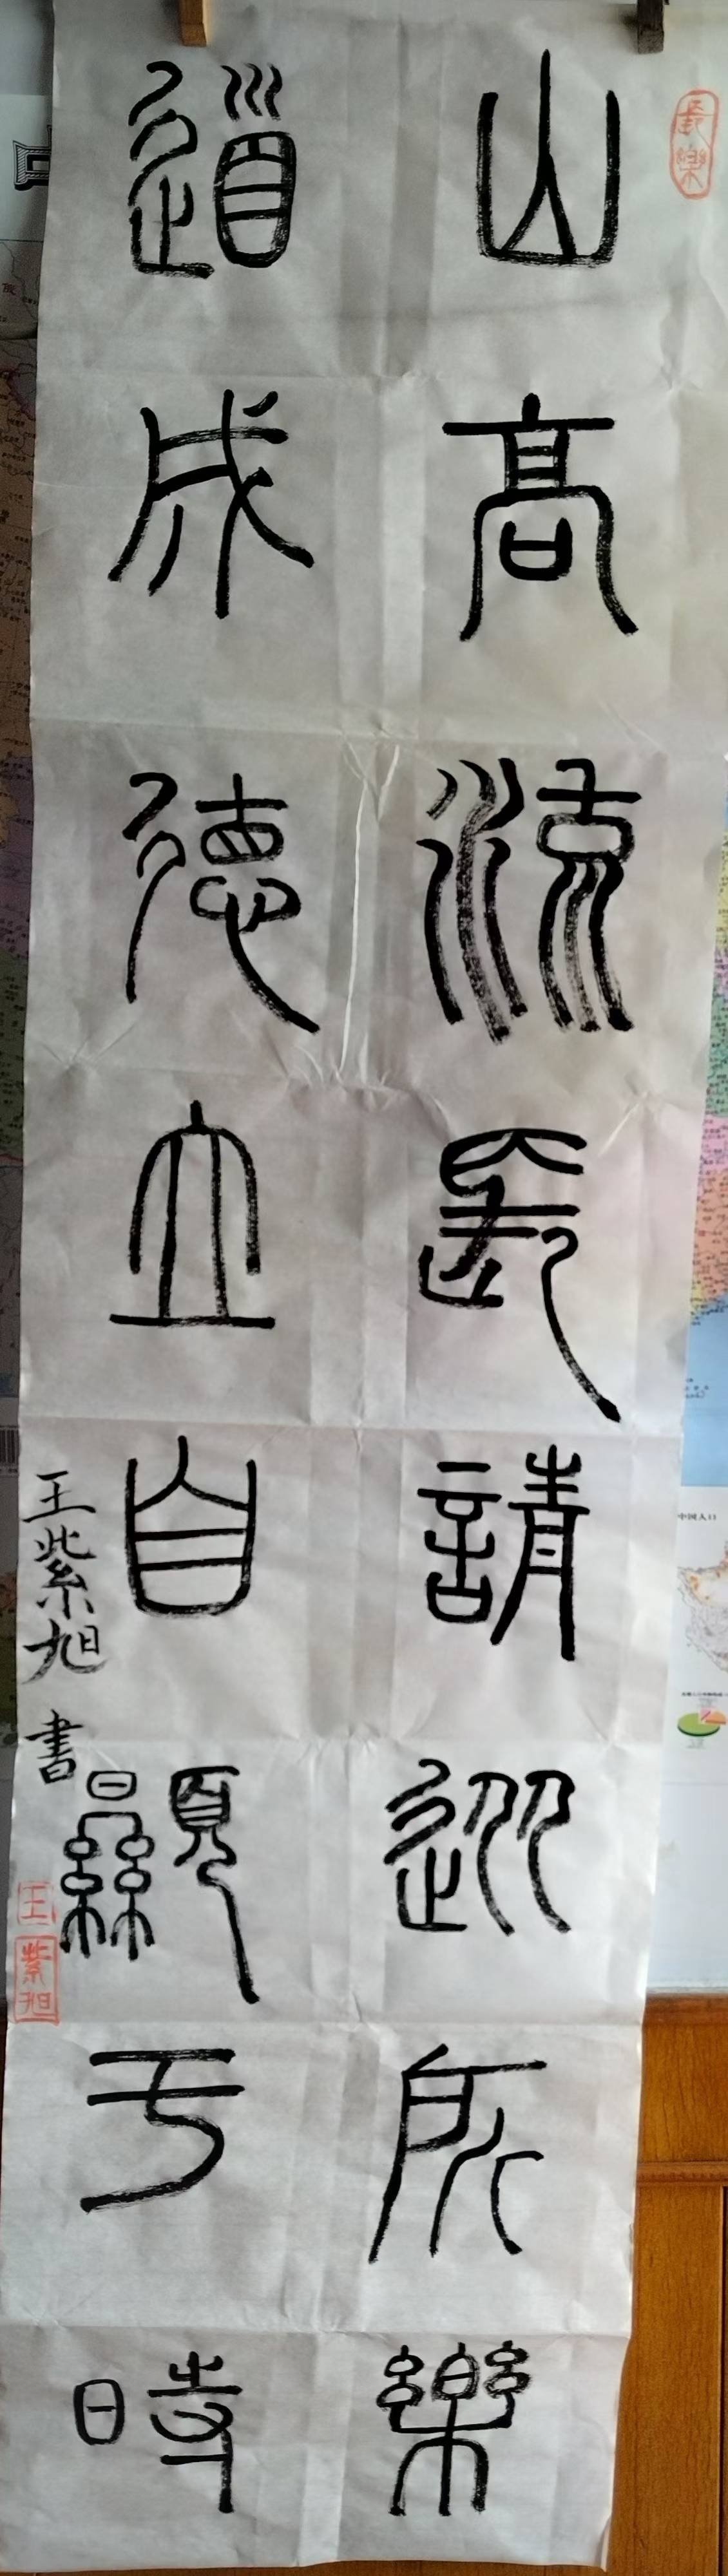 長樂
山高流長請迎所樂
道成德立自顯于時
王紫旭 書
王
紫旭
中国人口